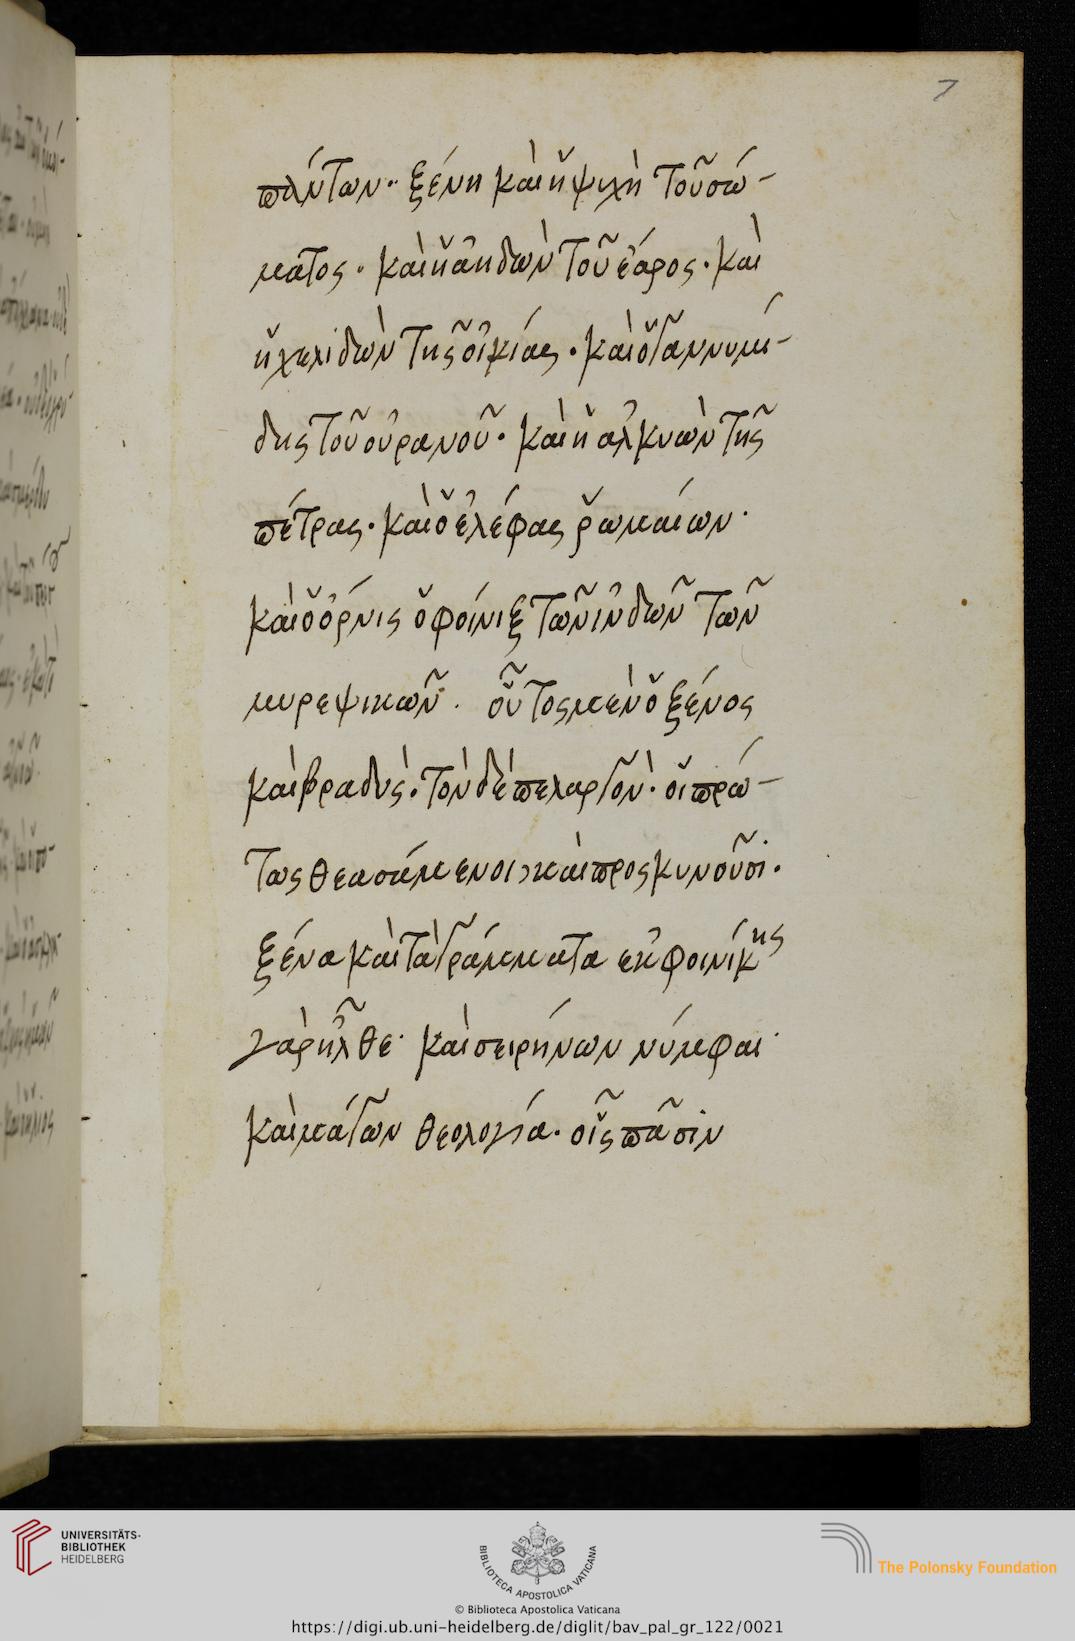 7
πάντων· ξένη καὶ ἡ ψυχὴ τοῦ σώ-
ματος· καὶ ἡ ἀηδὼν τοῦ ἔαρος· καὶ
ἡ χελιδὼν τῆς οἰκίας· καὶ ὁ γαννυμί-
δης τοῦ οὐρανοῦ· καὶ ἡ ἀλκυὼν τῆς
πέτρας· καὶ ὁ ἐλέφας ῥωμαίων·
καὶ ὁ ὄρνις ὁ φοίνιξ τῶν ἰνδῶν τῶν
μυρεψικῶν· οὗτος μὲν ὁ ξένος
καὶ βραδύς· τὸν δὲ πελαργὸν· οἱ πρώ-
τως θεασάμενοι καὶ προσκυνοῦσι·
ξένα καὶ τὰ γράμματα ἐκ φοινίκης
γὰρ ἦλθε· καὶ σειρήνων νύμφαι·
καὶ μάγων θεολογία· οἷς πᾶσιν
UNIVERSITÄTS-
BIBLIOTHEK
HEIDELBERG
BIBLIOTECA APOSTOLICA VATICANA
The Polonsky Foundation
© Biblioteca Apostolica Vaticana
https://digi.ub.uni-heidelberg.de/diglit/bav_pal_gr_122/0021